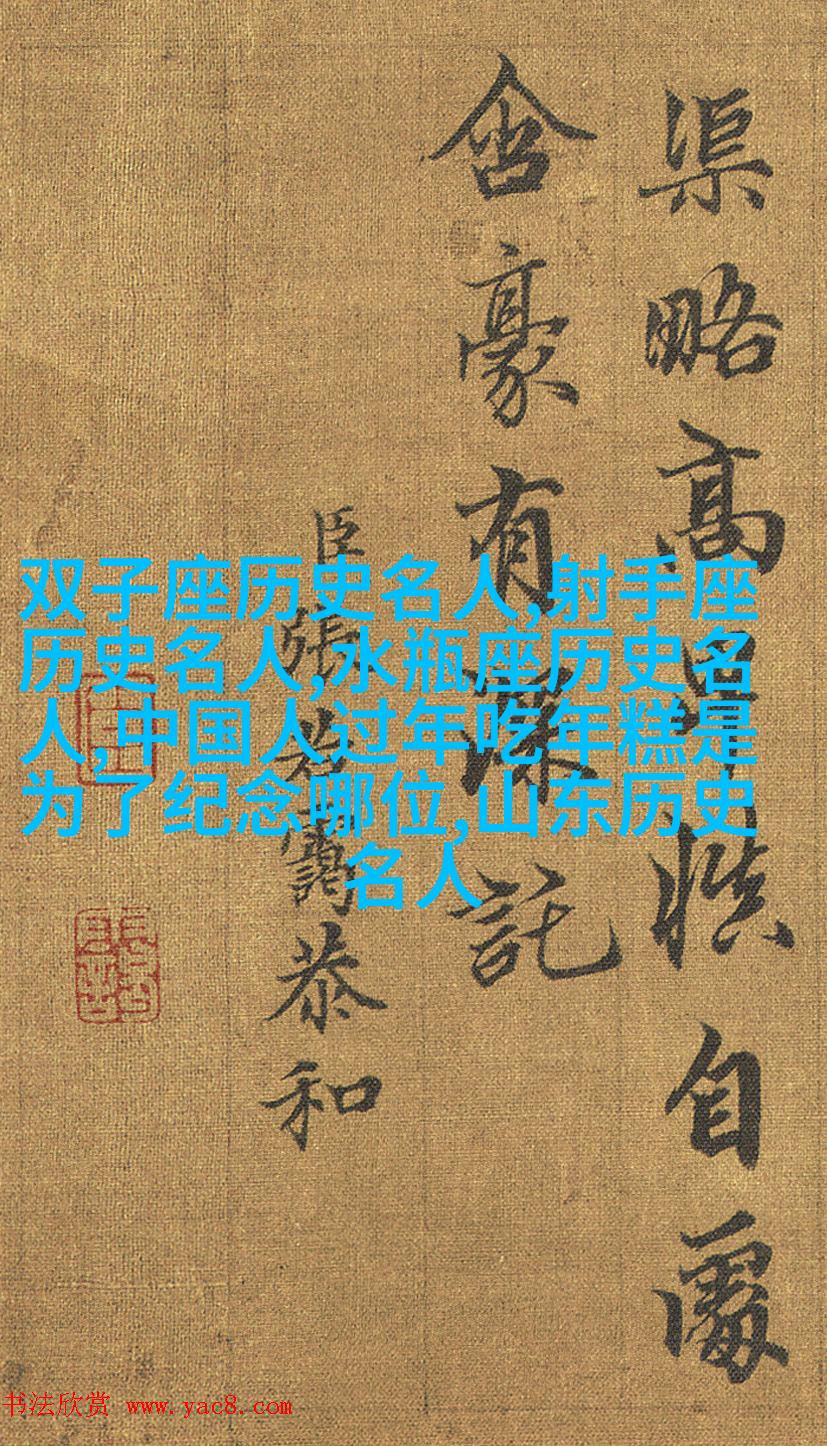 渠略高
自
含豪有
託
臣張若靄恭和
双子座历史名人,射手座
历史名人,水瓶座历史名
人,中国人过年吃年糕是
为了纪念哪位,山东历史
名人
书法欣赏 www.yac8.com